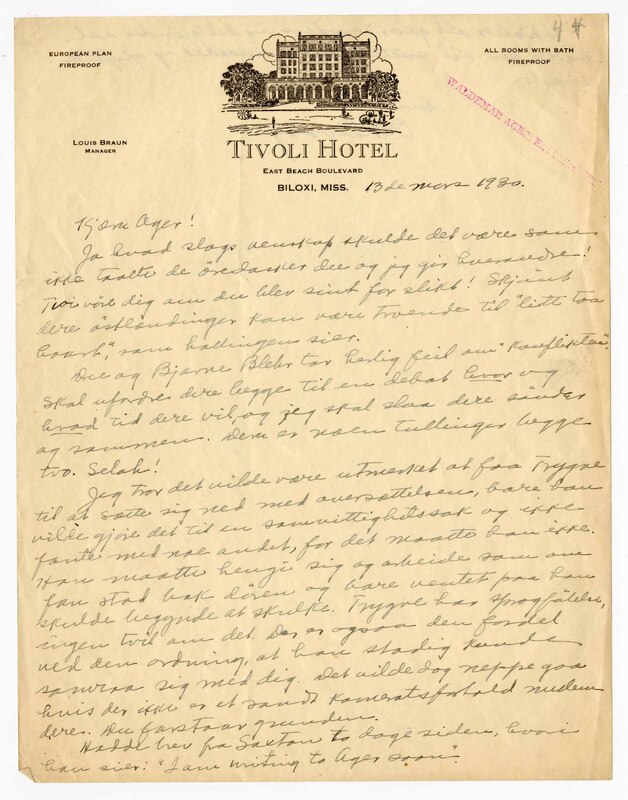 4 4
EUROPEAN PLAN
FIREPROOF
ALL ROOMS WITH BATH
FIREPROOF
WALDEMAR AGER
LOUIS BRAUN
MANAGER
TIVOLI HOTEL
EAST BEACH BOULEVARD
BILOXI, MISS. 13de mars 1930.
Kjære Ager!
Ja hvad slags venskap skulde det være som
ikke taalte de øredasker du og jeg gir hverandre!
Tvi vöre dig om du blev sint for slikt! Skjönt
dere östlendinger kan være troende til "litt taa
hvart", som hallingen sier.
Du og Bjarne Blehr tar herlig feil om "Konflikten".
Skal utfordre dere begge til en debat hvor og
hvad tid dere vil, og jeg skal slaa dere sönder
og sammen. Dere er noen tullinger begge
tvo. Selah!
Jeg tror det vilde være utmerket at faa Trygve
til at sætte sig ned med oversættelsen, bare han
vilde gjöre det til en samvittighetssak og ikke
fante med noe andet, for det maatte han ikke.
Han maatte hengi sig og arbeide som om
fan stod bak dören og bare ventet paa han
skulde begynde at skulke. Trygve har sprogfölelse,
ingen tvil om det. Der er ogsaa den fordel
ved den ordning, at han stadig kunde
samraa sig med dig. Det vilde dog neppe gaa
hvis der ikke er et sandt kameratsforhold mellem
dere. Du forstaar grunden.
Hadde brev fra Saxton to dage siden, hvori
han sier: "I am writing to Ager soon".